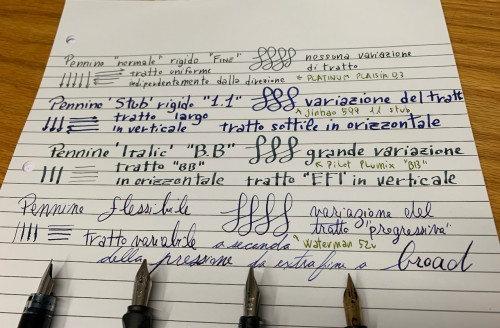 Pennino "normale" rigido "Fine" nessuna variazione
tratto uniforme di tratto
indipendentemente dalla direzione ← PLATINUM PLAISIR 0.3
Pennino 'Stub' rigido "1.1" variazione del tratt
tratto largo Jinhao 599 1.1 stub
in verticale tratto sottile in orizzontale
Pennino 'Italic' "B.B" grande variazione
tratto "BB" ← Pilot Plumix "BB"
in orizzontale tratto "EF" in verticale
Pennino flessibile variazione del
tratto "progressiva"
tratto variabile a seconda Waterman 52v
della pressione da extrafine a broad